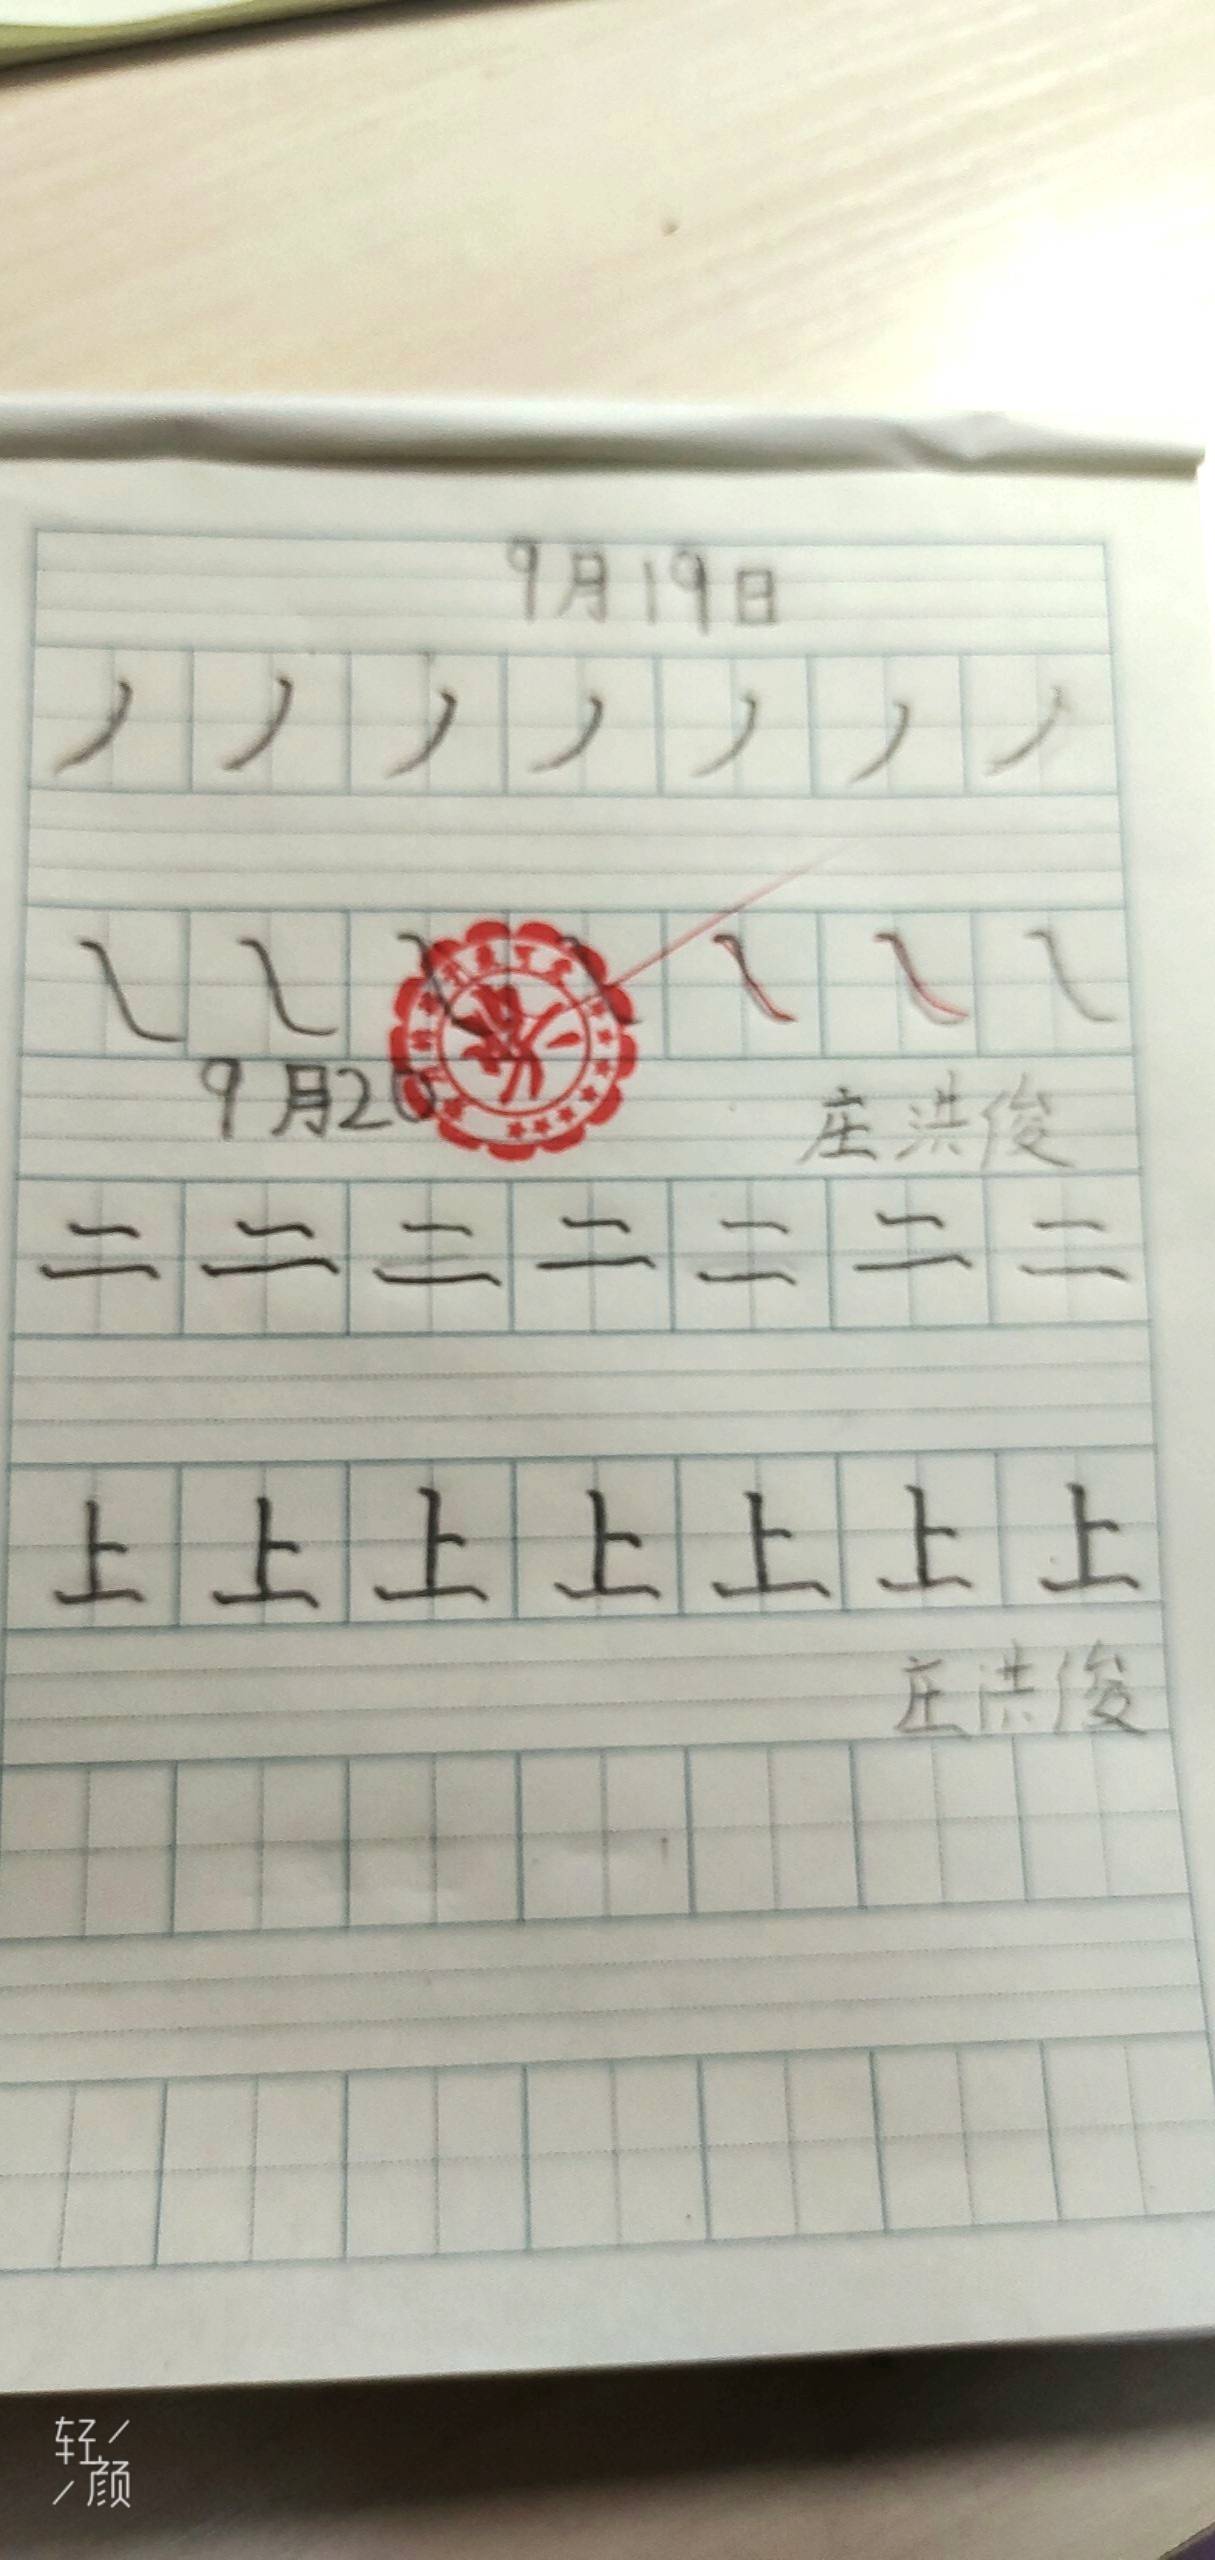 9月19日
丿 丿 丿 丿 丿 丿 丿
㇏ ㇏ ㇏ ㇏ ㇏ ㇏ ㇏
9月20
庄洪俊
二 二 二 二 二 二 二
上 上 上 上 上 上 上
庄洪俊
轻颜